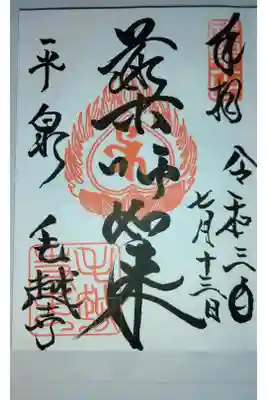 奉拝
令和三年
七月十三日
薬師如来
平泉
毛越寺